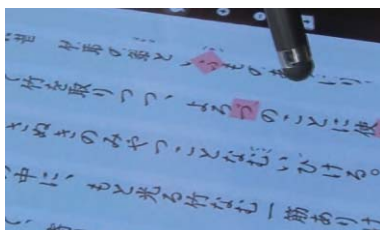 竹取の翁といふもの
竹を取りつつ、よろづのことに使
さぬきのみやつことなむいひける。
中に、もと光る竹なむ一筋ありけ